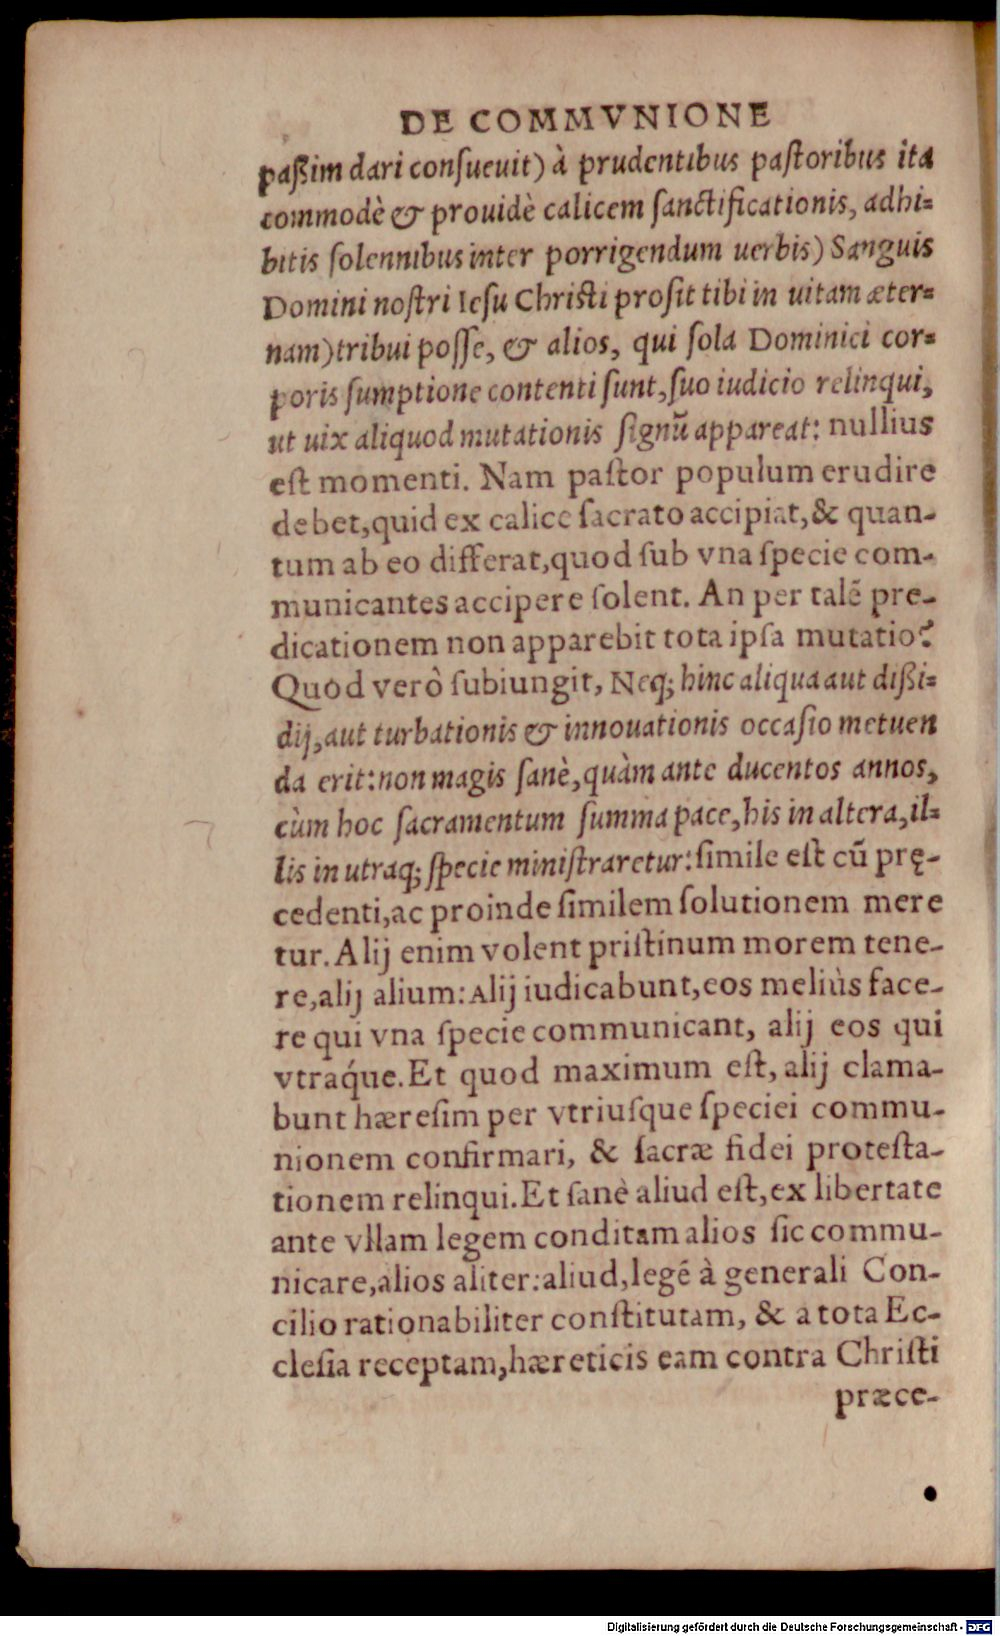 DE COMMVNIONE
paßim dari conſueuit) à prudentibus paſtoribus ita
commodè & prouidè calicem ſanctificationis, adhi=
bitis ſolennibus inter porrigendum uerbis) Sanguis
Domini noſtri Ieſu Chriſti proſit tibi in uitam æter=
nam) tribui poſſe, & alios, qui ſola Dominici cor=
poris ſumptione contenti ſunt, ſuo iudicio relinqui,
ut uix aliquod mutationis ſignũ appareat: nullius
eſt momenti. Nam paſtor populum erudire
debet, quid ex calice ſacrato accipiat, & quan-
tum ab eo differat, quod ſub vna ſpecie com-
municantes accipere ſolent. An per talẽ pre-
dicationem non apparebit tota ipſa mutatio?
Quod verò ſubiungit, Neq; hinc aliqua aut dißi=
dij, aut turbationis & innouationis occaſio metuen
da erit: non magis ſanè, quàm ante ducentos annos,
cùm hoc ſacramentum ſumma pace, his in altera, il=
lis in utraq; ſpecie miniſtraretur: ſimile eſt cũ prę-
cedenti, ac proinde ſimilem ſolutionem mere
tur. Alij enim volent priſtinum morem tene-
re, alij alium: Alij iudicabunt, eos meliùs face-
re qui vna ſpecie communicant, alij eos qui
vtraq́ue. Et quod maximum eſt, alij clama-
bunt hæreſim per vtriuſque ſpeciei commu-
nionem confirmari, & ſacræ fidei proteſta-
tionem relinqui. Et ſanè aliud eſt, ex libertate
ante vllam legem conditam alios ſic commu-
nicare, alios aliter: aliud, legẽ à generali Con-
cilio rationabiliter conſtitutam, & a tota Ec-
cleſia receptam, hæreticis eam contra Chriſti
præce-
Digitalisierung gefördert durch die Deutsche Forschungsgemeinschaft - DFG